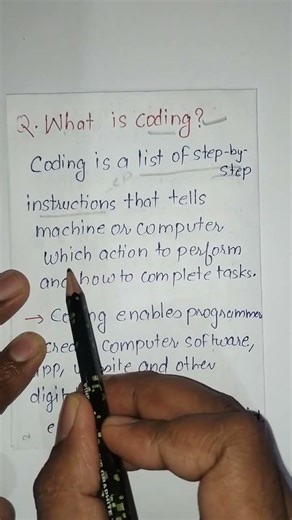 Q. What is coding?
Coding is a list of step-by-
step
instructions that tells
machine or computer
which action to perform
and how to complete tasks.
→ Coding enables programmer
computer software,
and other